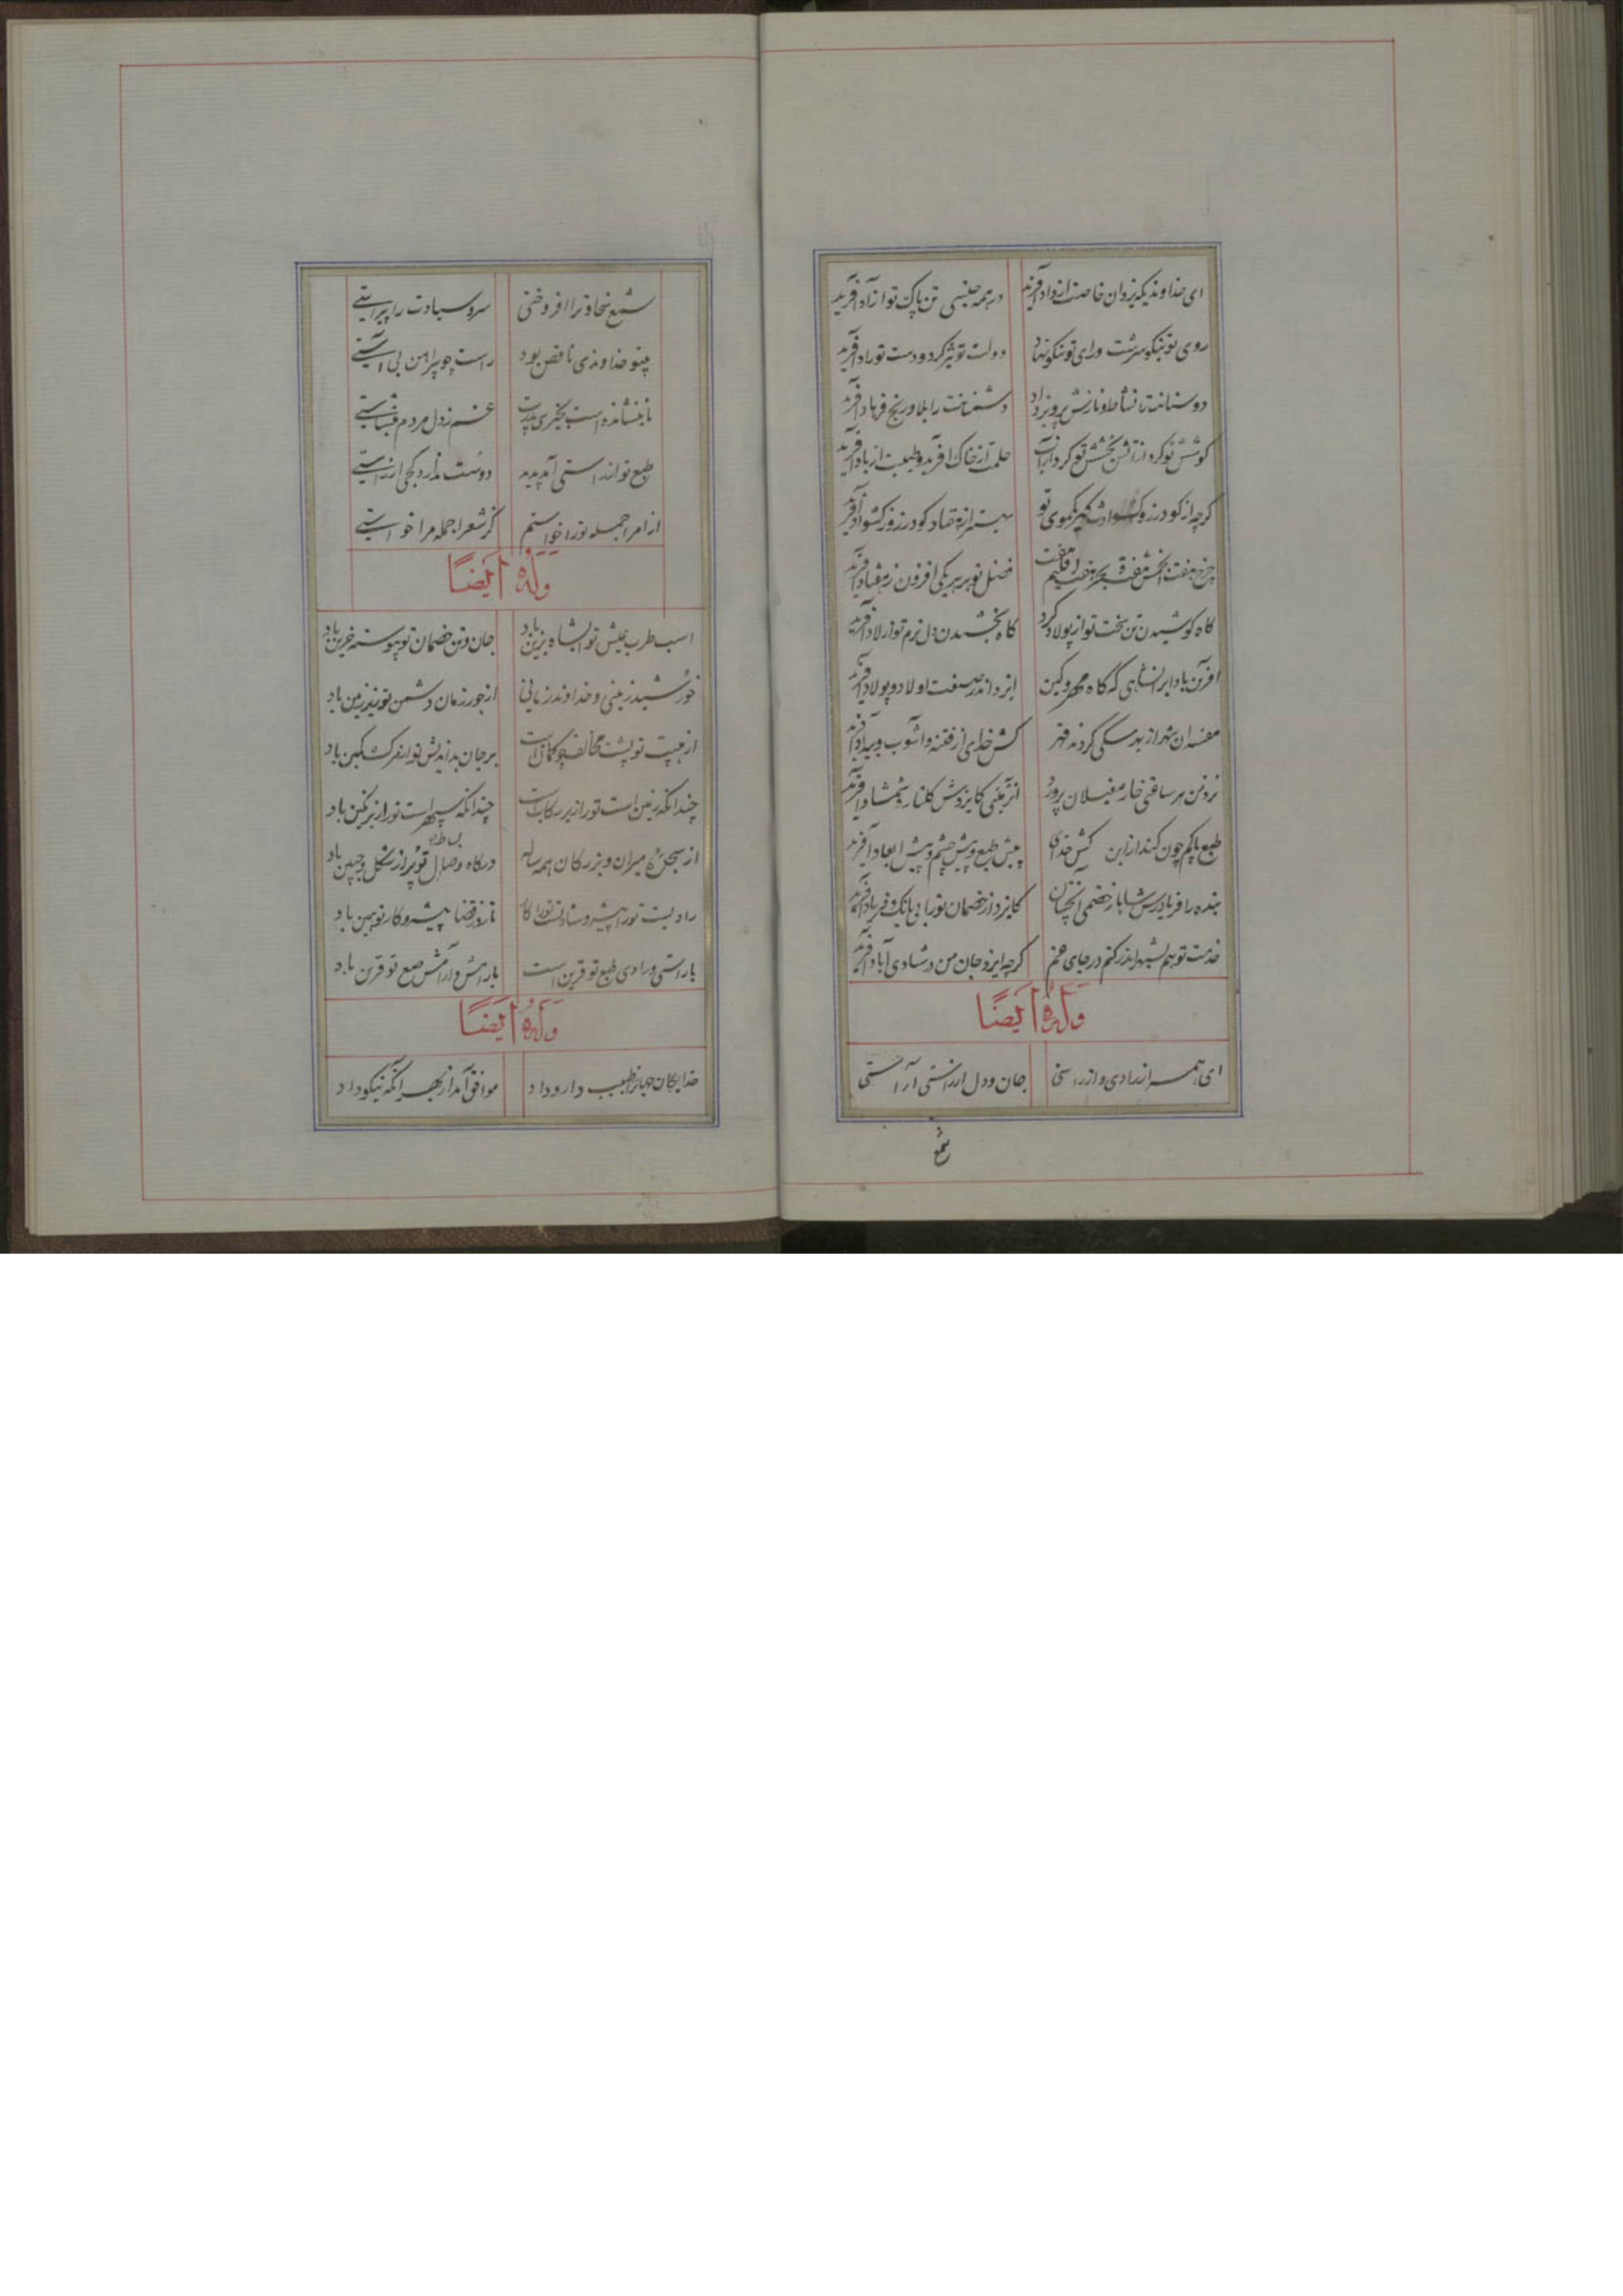 ای خداوندیکه یزدان خاصت از داد آفرید در همه جنسی تن پاک تو آزاد آفرید
روی تو نیکو سرشت و رای تو نیکو نهاد دولت تو تیز کرد و دست تو راد آفرید
دوستانت با نشاط و نازش پرویز داد دشمنانت را بلا و رنج فرهاد آفرید
کوشش تو کرد از آتش بخشش تو کرد از آب حلمت از خاک آفرید و طبعت از باد آفرید
گرچه از گودرز و کشواد کمتر موی تو بهتر از هفتاد گودرز و ز کشواد آفرید
چرخ هفت انجمش هفت هفت اقلیم فضل تو بر هر یکی افزون ز هفتاد آفرید
گاه کوشیدن تن سخت تو از پولاد کرد گاه بخشیدن دل نرم تو از لاد آفرید
آفرین باد ابر آنشاهی که گاه مهر و کین ایزد اندر صنعت او لاد و پولاد آفرید
مفسدان شهر از بد سگی کردند قهر کش خدای از فتنه و آشوب و بیداد آفرید
نزد من هر ساعتی خار مغیلان پرورد از بتی کایزدش گلنار و شمشاد آفرید
طبع پاکم چون کند از این کش خدای پیش طبع و پیش چشم و پیش ابعاد آفرید
بنده را فریادرس شاها ز خصمی آنچنان کایزد از خصمان تو را بی بانگ و فریاد آفرید
خدمت تو هم بشهر اندر کنم در جای غم گرچه ایزد جان من در شادی آباد آفرید
وله ایضاً
ای همه از رادی و از راستی جان و دل از راستی آراستی
شمع
شمع سخا و ترا افروختی سرو سیادت را پیراستی
بیتو خداوندی ناقص بود راست چو پیراهن بی آستی
تا بنشانده است بخیری پدرت غم ز دل مردم بنشاستی
طبع تو از راستی آمد پدید دوست ندارد کجی از راستی
از امرا جمله تو را خواستم کز شعرا جمله مرا خواستی
وله ایضاً
اسب طرب و عیش تو ایشاه بزین باد جان و تن خصمان تو پیوسته حزین باد
خورشید زمینی و خداوند زمانی از جور زمان دشمن تو زیر زمین باد
از هیبت تو پشت مخالف چو کمان است بر جان بداندیش تو از مرگ کمین باد
چندانکه زمین است تو را زیر رکاب است چندانکه سپهر است تو را زیر نگین باد
از سجده میران و بزرگان همه ساله درگاه و بساط تو پر از شکل جبین باد
رادیست تو را پیشه و شادیست تو را کار تا روز قضا پیشه و کار تو همین باد
با راستی و رادی طبع تو قرین است با رامش و آرامش طبع تو قرین باد
وله ایضاً
خدایگان جهانرا طبیب دارو داد موافق آمد از بهر آنکه نیکو داد